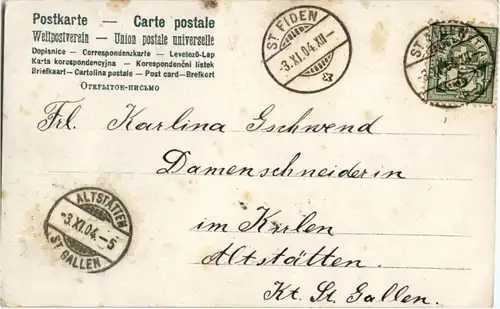 Postkarte – Carte postale
Weltpostverein – Union postale universelle
Dopisnice – Correspondenzkarte – Levelező-Lap
Karta korespondencyjna – Korespondenční lístek
Briefkaart – Cartolina postale – Post card – Brefkort
Открытое-письмо
ST FIDEN
-3.XI.04.XII-
ST FIDEN
Frl. Karlina Gschwend
Damenschneiderin
im Krilen
Altstätten.
Kt. St. Gallen.
ALTSTÄTTEN
-3.XI.04.-5
ST GALLEN